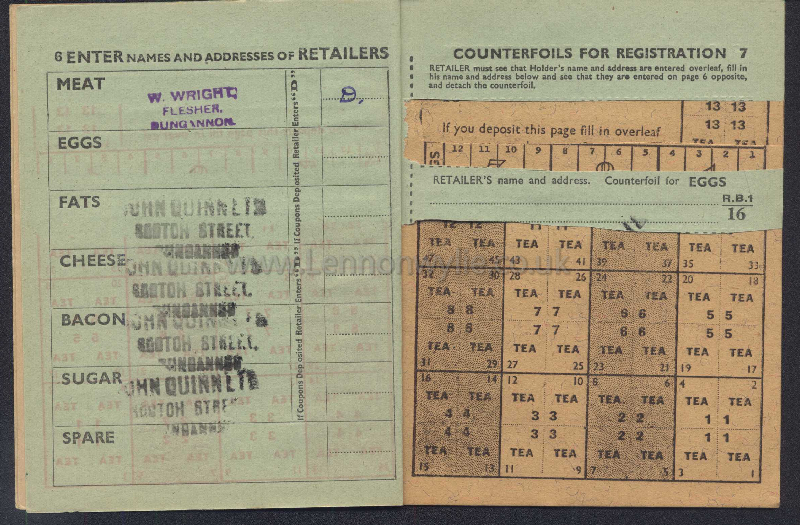 6 ENTER NAMES AND ADDRESSES OF RETAILERS
MEAT
W. WRIGHT,
FLESHER,
DUNGANNON.
D,
EGGS
FATS
JOHN QUINN LTD
SCOTCH STREET,
DUNGANNON
CHEESE
JOHN QUINN LTD
SCOTCH STREET,
DUNGANNON
BACON
JOHN QUINN LTD
SCOTCH STREET,
DUNGANNON
SUGAR
JOHN QUINN LTD
SCOTCH STREET
DUNGANNON
SPARE
If Coupons Deposited Retailer Enters "D"
If Coupons Deposited Retailer Enters "D"
COUNTERFOILS FOR REGISTRATION 7
RETAILER must see that Holder's name and address are entered overleaf, fill in
his name and address below and see that they are entered on page 6 opposite,
and detach the counterfoil.
13 13
13 13
If you deposit this page fill in overleaf
12 11 10 9 8 7 6 5 4 3 2 1
RETAILER'S name and address. Counterfoil for EGGS
R.B.1
16
12 12 11 11
TEA TEA TEA TEA TEA TEA TEA TEA
47 45 43 41 39 37 35 33
32 30 28 26 24 22 20 18
TEA TEA TEA TEA TEA TEA TEA TEA
8 8 7 7 6 6 5 5
8 8 7 7 6 6 5 5
TEA TEA TEA TEA TEA TEA TEA TEA
31 29 27 25 23 21 19 17
16 14 12 10 8 6 4 2
TEA TEA TEA TEA TEA TEA TEA TEA
4 4 3 3 2 2 1 1
4 4 3 3 2 2 1 1
TEA TEA TEA TEA TEA TEA TEA TEA
15 13 11 9 7 5 3 1
www.Lennonwylie.co.uk